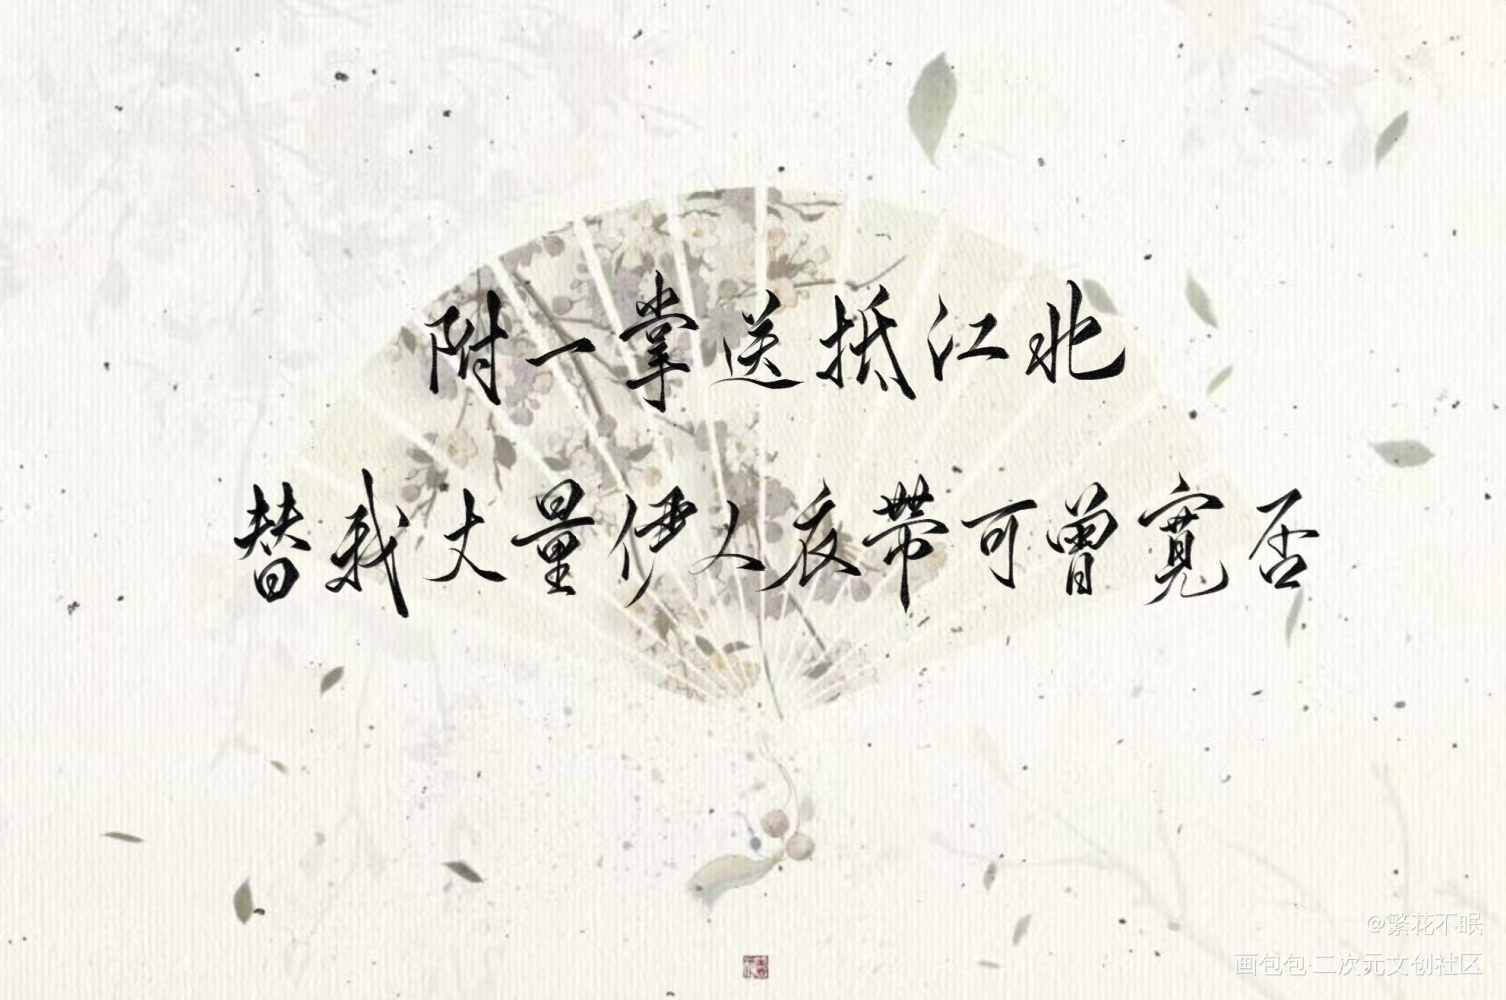 附一掌送抵江北
替我丈量伊人衣带可曾宽否
@繁花不眠
画包包·二次元文创社区